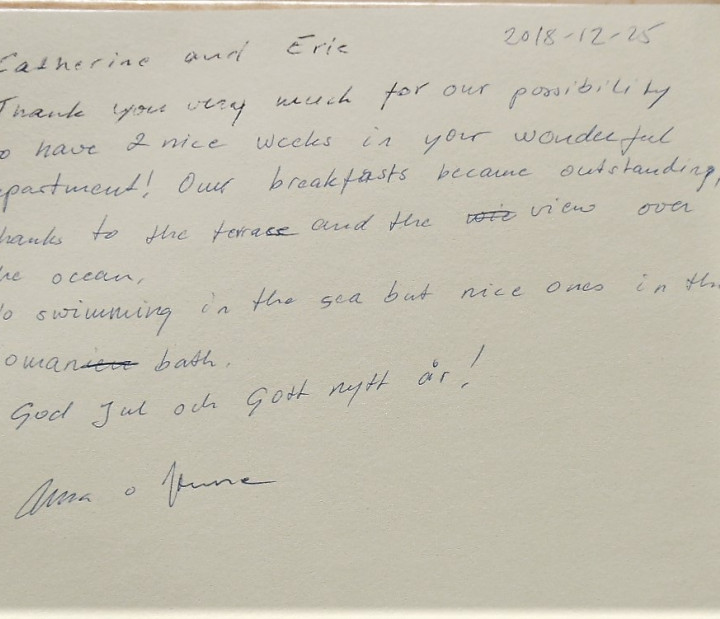 2018-12-25
Catherine and Eric
Thank you very much for our possibility
o have 2 nice weeks in your wonderful
partment! Our breakfasts became outstanding,
hanks to the terrace and the view over
he ocean.
o swimming in the sea but nice ones in the
oman bath.
God Jul och Gott nytt år!
Anna o